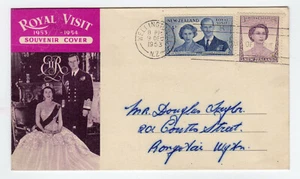 ROYAL VISIT
1953 / 1954
SOUVENIR COVER
EIIR
WELLINGTON
9 DEC
1953
N.Z.
NEW ZEALAND
NEW ZEALAND
Mr. Douglas Taylor
201 Coutts Street,
Rongotai Wgtn.